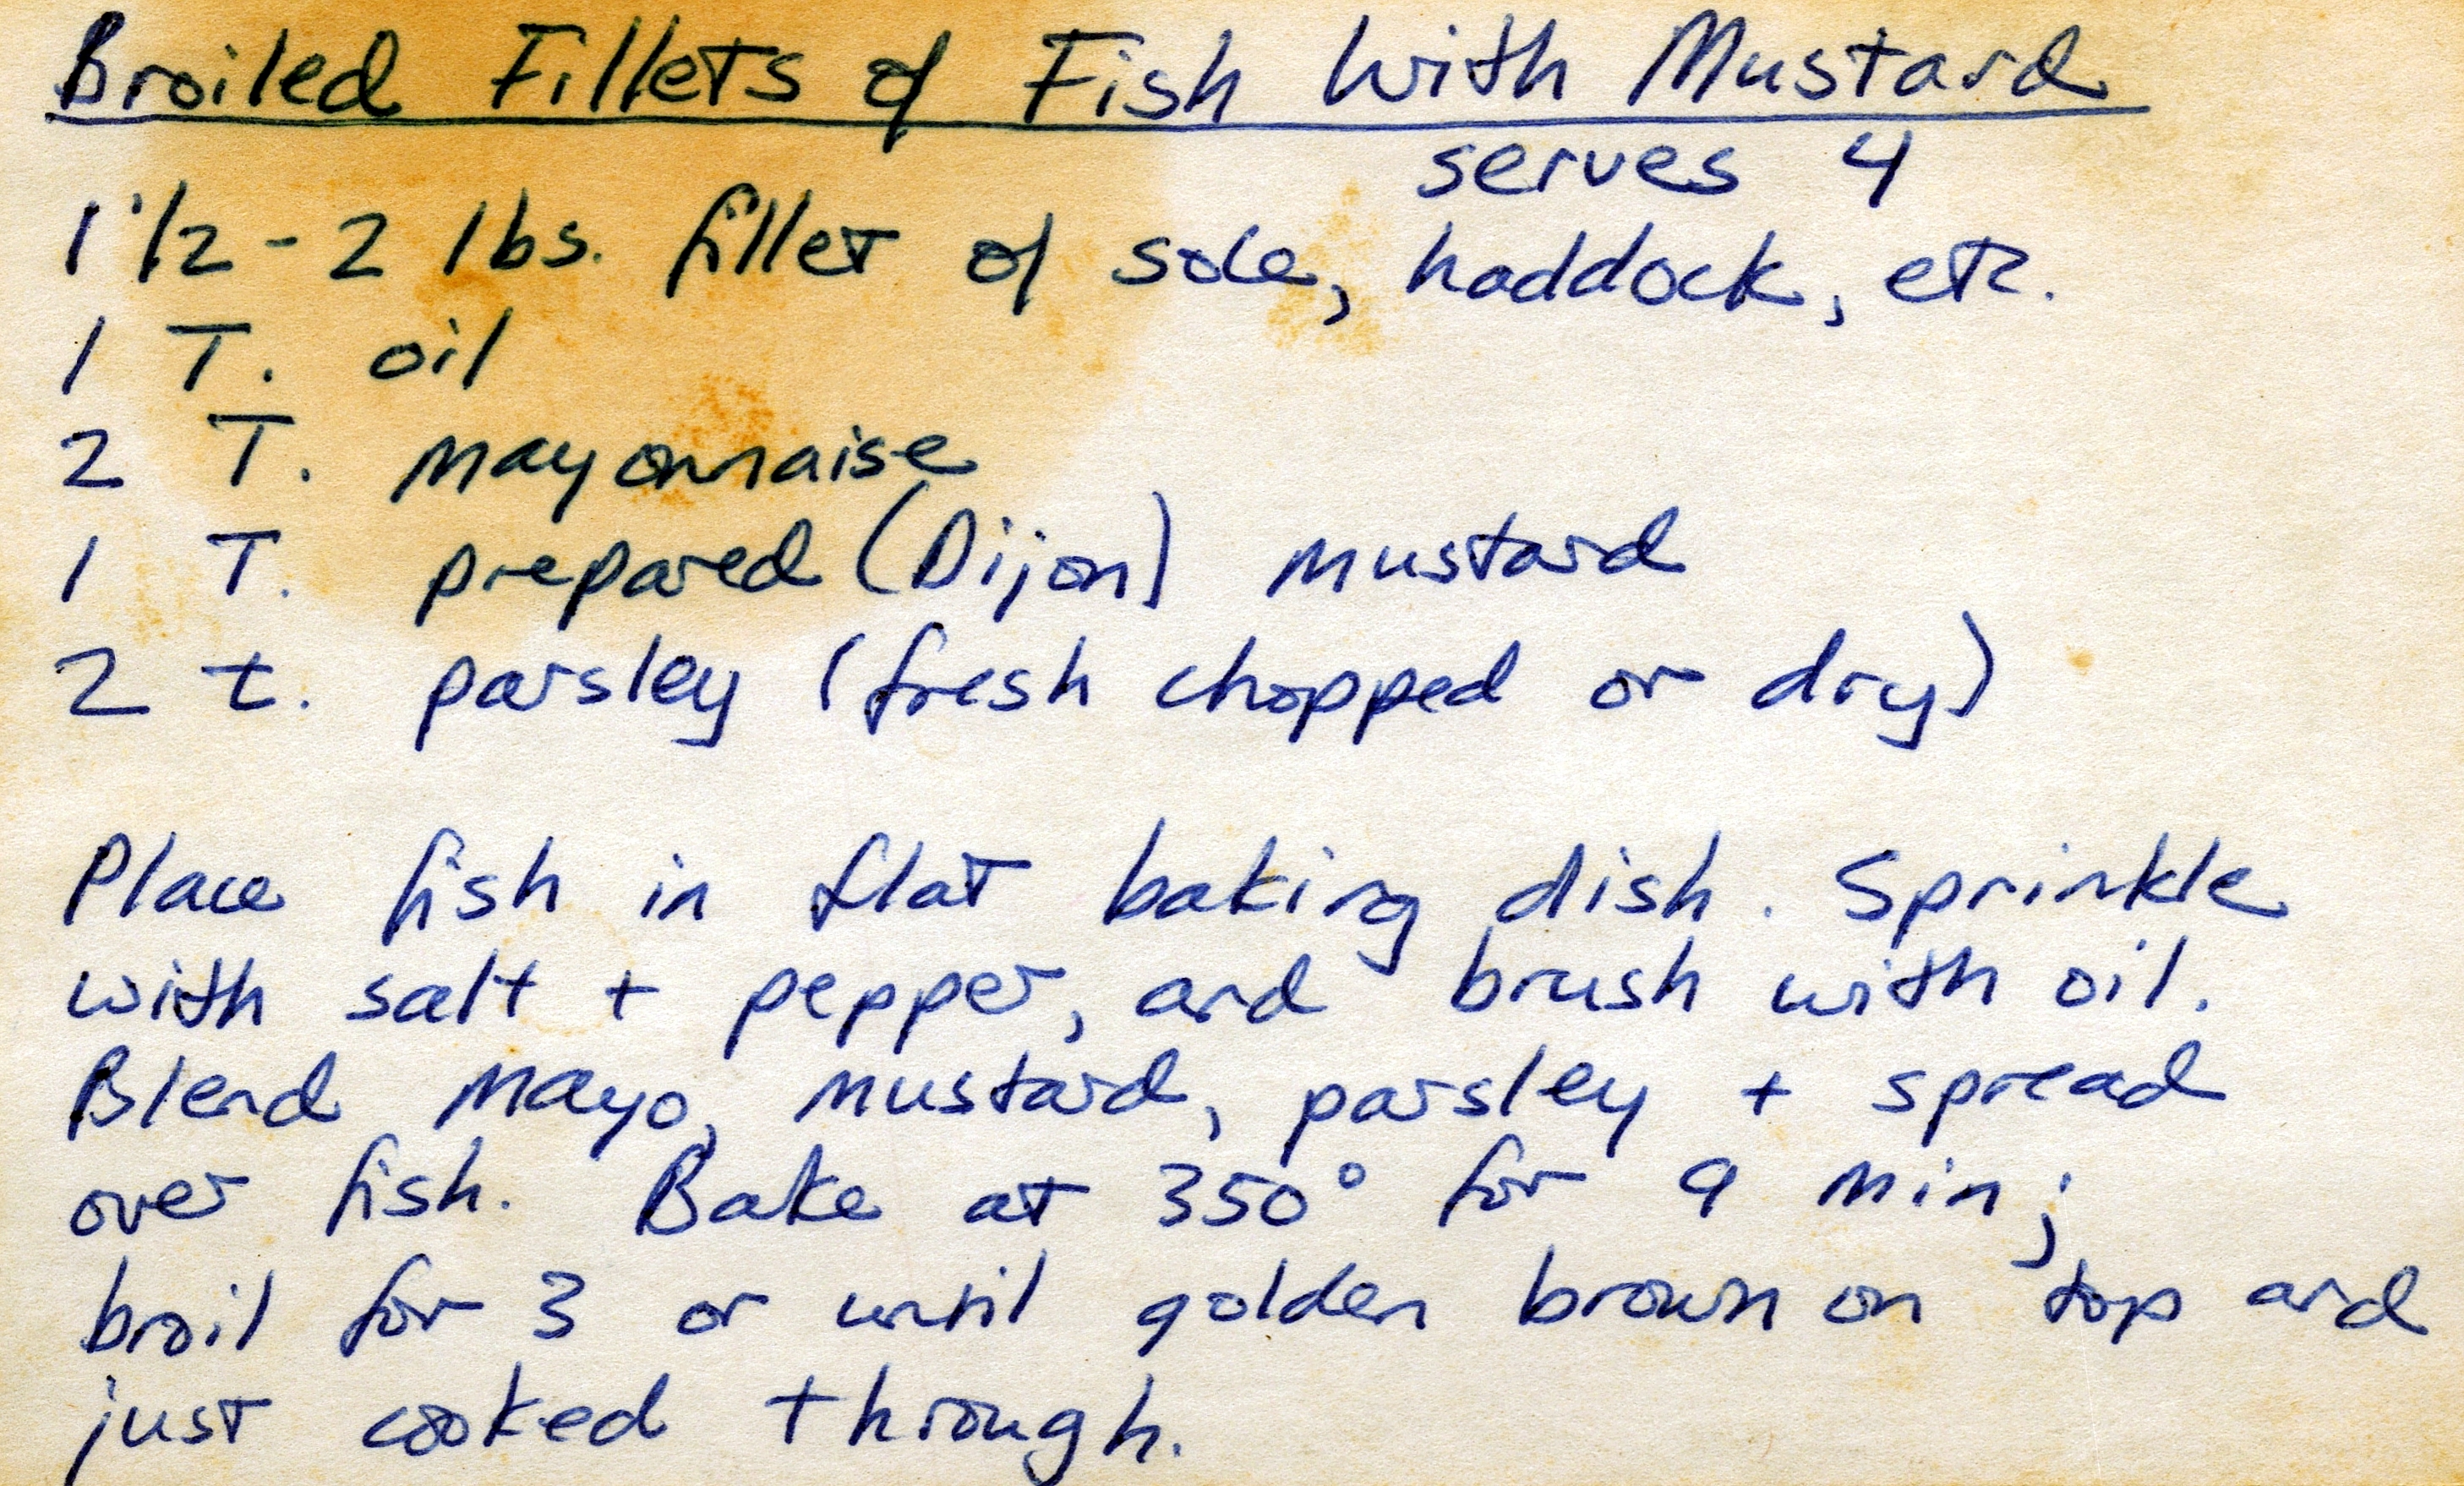 Broiled Fillets of Fish With Mustard
serves 4
1 1/2 - 2 lbs. fillet of sole, haddock, etc.
1 T. oil
2 T. mayonnaise
1 T. prepared (Dijon) mustard
2 t. parsley (fresh chopped or dry)
Place fish in flat baking dish. Sprinkle
with salt + pepper, and brush with oil.
Blend mayo, mustard, parsley + spread
over fish. Bake at 350° for 9 min;
broil for 3 or until golden brown on top and
just cooked through.